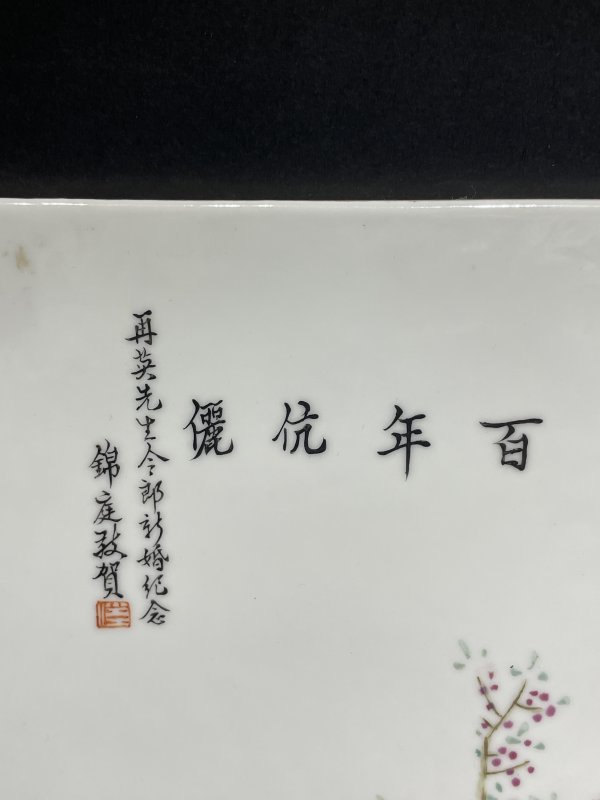 百年伉儷
再英先生令郎新婚纪念
錦庭敬賀